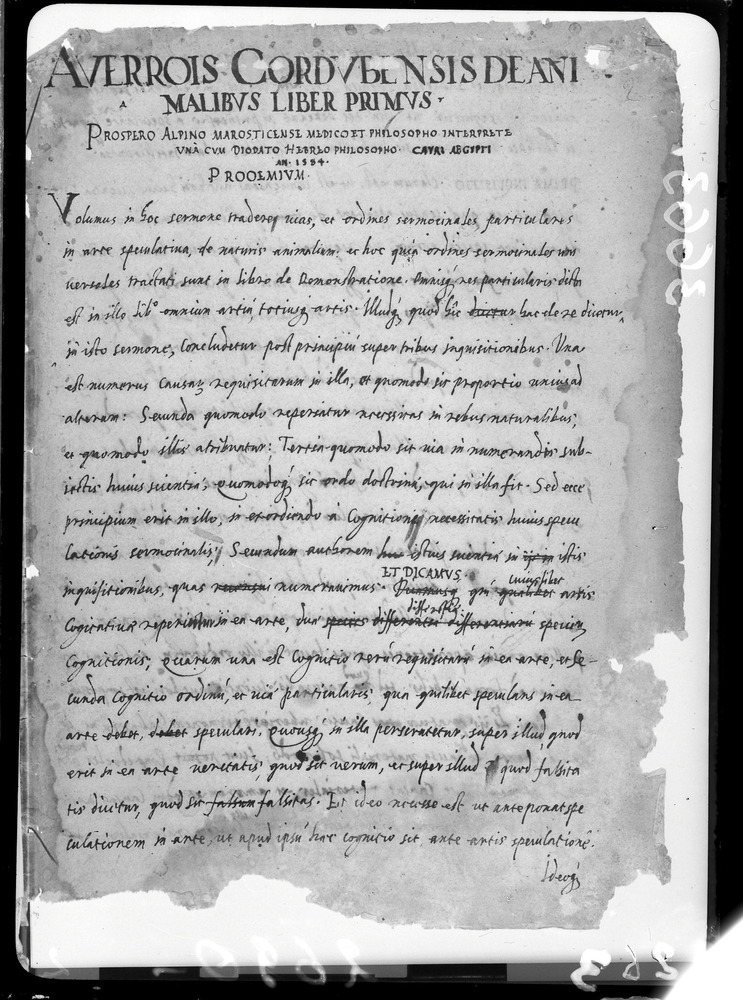 AVERROIS CORDVBENSIS DE ANI
MALIBVS LIBER PRIMVS.
PROSPERO ALPINO MAROSTICENSE MEDICO ET PHILOSOPHO INTERPRETE
VNÀ CVM DIODATO HEBREO PHILOSOPHO. CAYRI AEGIPTI
AN. 1584.
PROOEMIVM.
Volumus in hoc sermone tradere vias, et ordines sermocinales particulares
in arte speculativa, de naturis animalium: et hoc quia ordines sermocinales uni
versales tractati sunt in libro de Demonstratione. omnisq́ res particularis dicta
est in illo lib° omnium artiū, totiusq́ artis. Illudq́ quod hîc dicetur hac de re dicetur,
in isto sermone, Concludetur post principiū super tribus inquisitionibus. Una
est numerus causarum requisitarum in illa, et quomodo sit proportio unius ad
alteram: Secunda quomodo reperiatur necessitas in rebus naturalibus,
et quomodo illis atribuatur: Tertia quomodo sit via in numerandis sub-
iectis huius scientiæ, quomodoq́ sit ordo doctrinæ, qui in illa fit. Sed ecce
principium erit in illo, in exordiendo a Cognitione necessitatis huius specu
lationis sermocinalis, Secundum authorem istius scientiæ in istis
inquisitionibus, quas numeravimus. ET DICAMVS. cuiuslibet artis
Cogitativæ in ea arte, duæ differentiæ specierum
Cognitionis, quarum una est cognitio rerū requisitarū in ea arte, et Se-
cunda Cognitio ordinū, et viæ particularis, qua quilibet speculans in ea
arte debet, debet speculari, quousq́ in illa perscrutetur, super illud, quod
erit in ea arte veritatis, quod sit verum, et super illud quod falsita
tis dicetur, quod sit falsum falsitas. Et ideo necesse est ut anteponat spe
culationem in arte, ut apud ipsū hæc cognitio sit ante artis speculationē.
Ideoq́